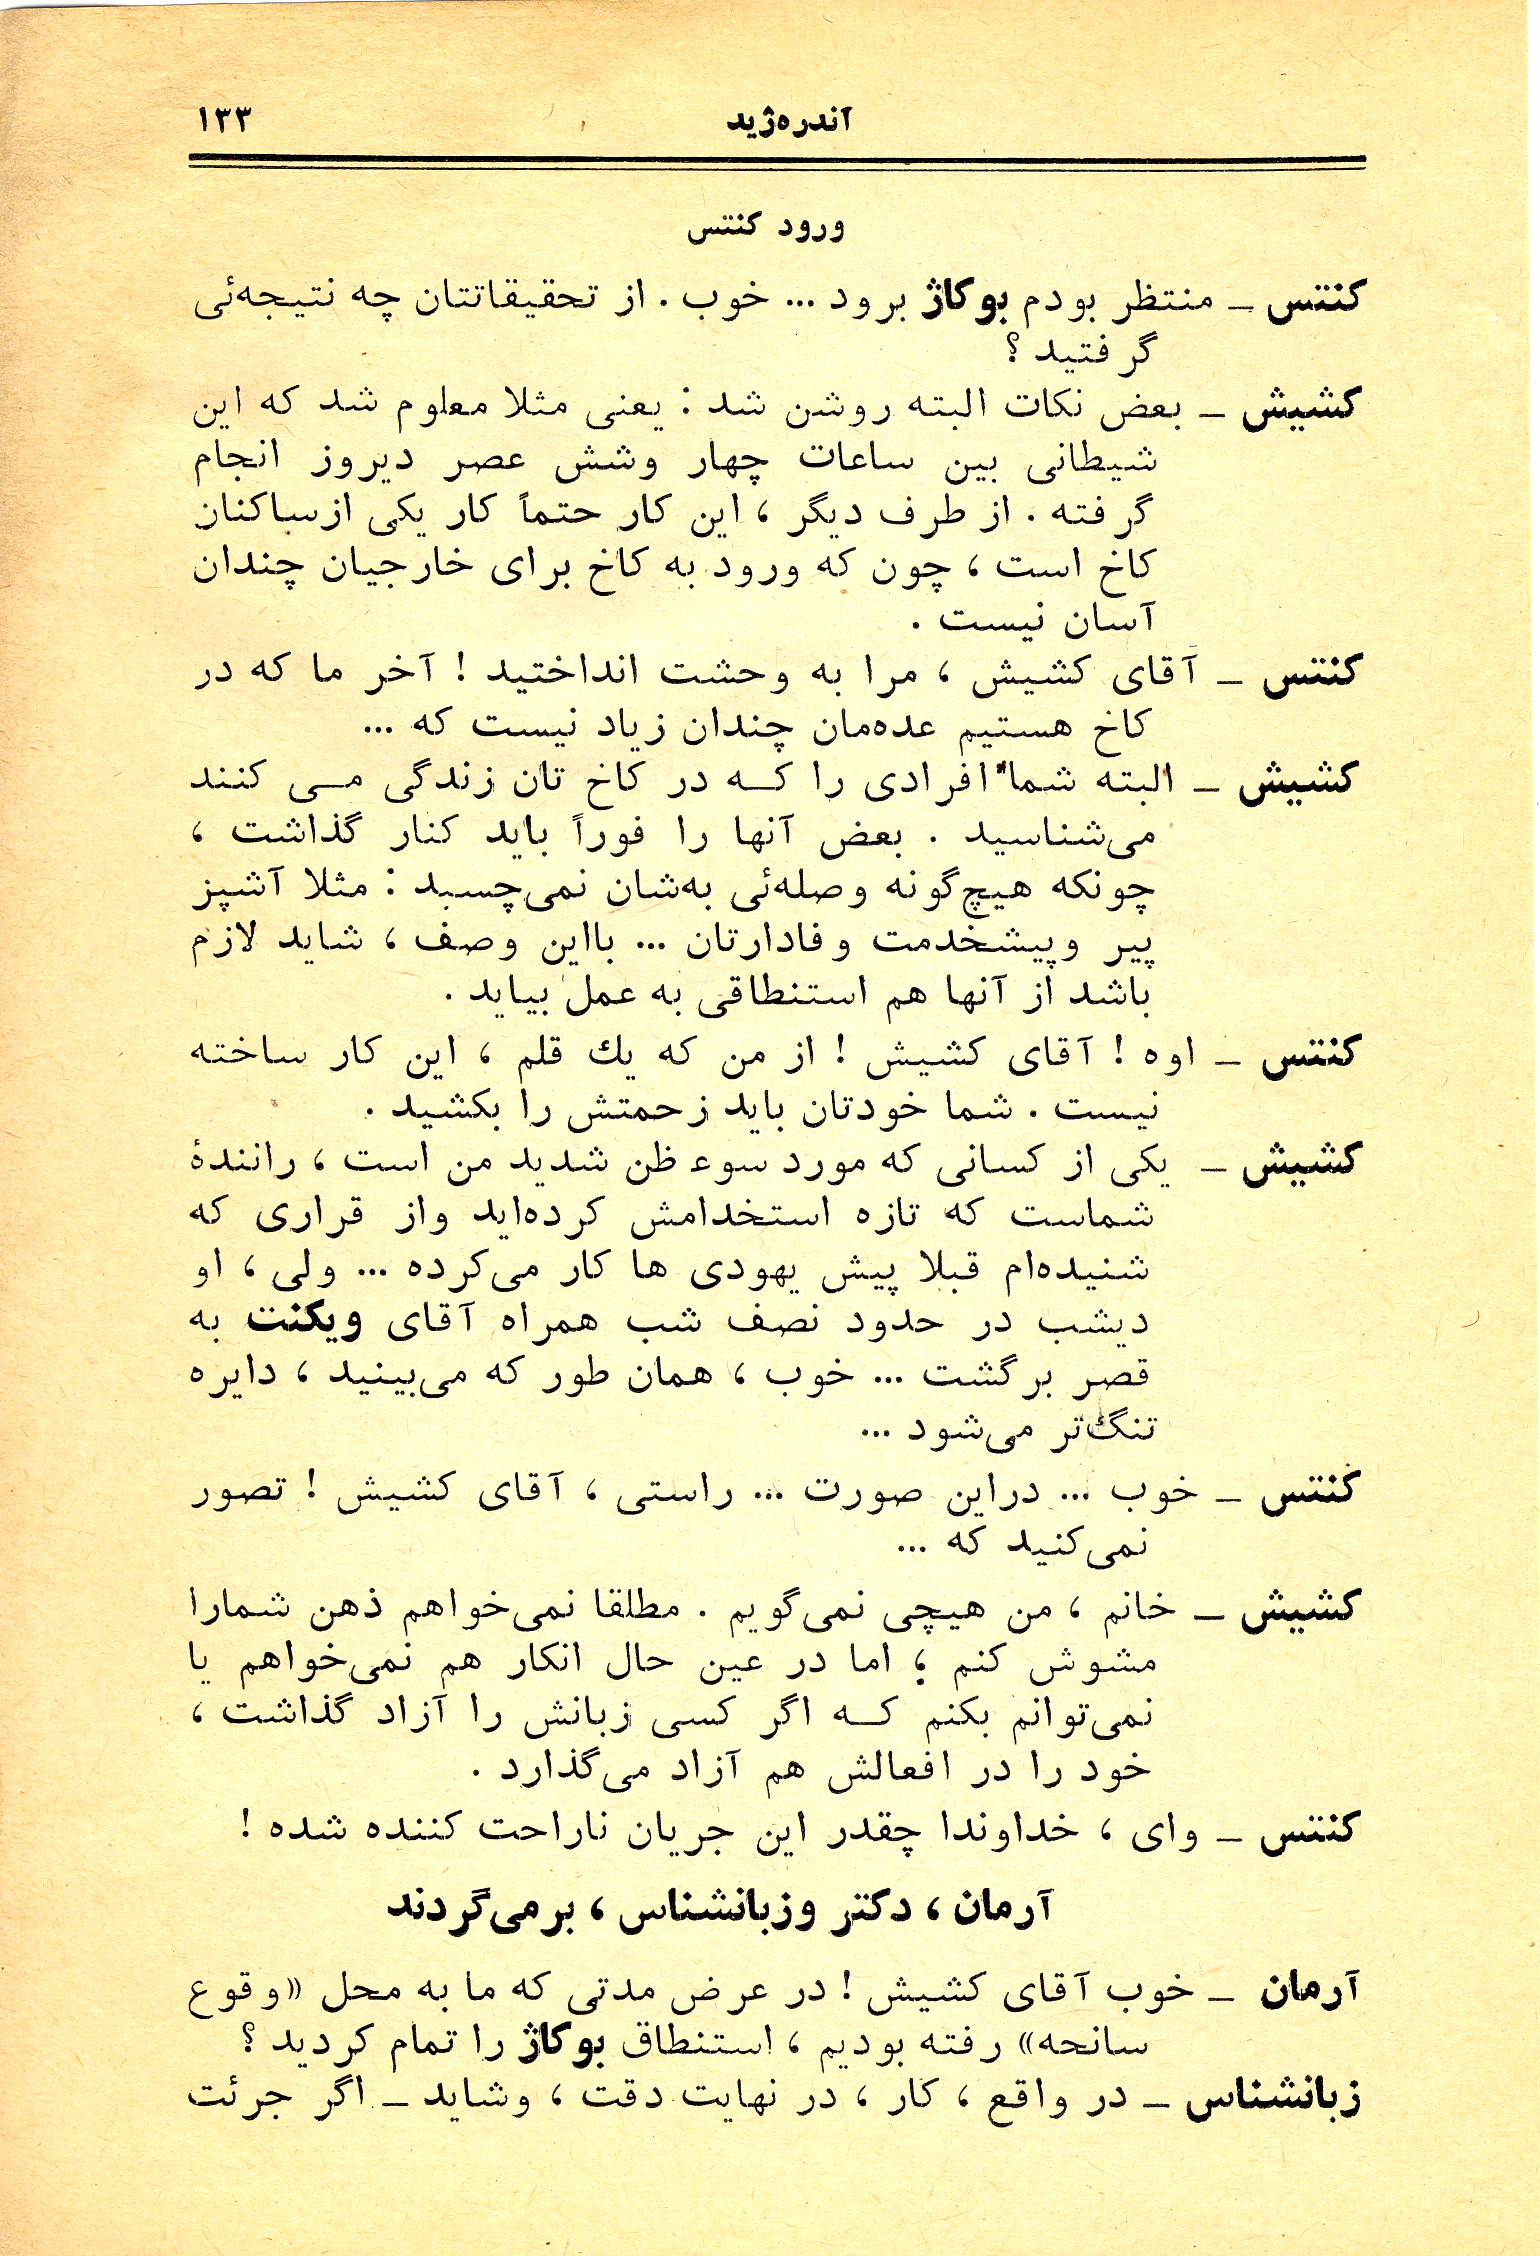 آندره‌ژید ۱۳۳
ورود کنتس
کنتس ـ منتظر بودم بوکاژ برود ... خوب . از تحقیقاتتان چه نتیجه‌ئی
گرفتید ؟
کشیش ـ بعض نکات البته روشن شد : یعنی مثلا معلوم شد که این
شیطانی بین ساعات چهار وشش عصر دیروز انجام
گرفته . از طرف دیگر ، این کار حتماً کار یکی ازساکنان
کاخ است ، چون که ورود به کاخ برای خارجیان چندان
آسان نیست .
کنتس ـ آقای کشیش ، مرا به وحشت انداختید ! آخر ما که در
کاخ هستیم عده‌مان چندان زیاد نیست که ...
کشیش ـ البته شما افرادی را کـه در کاخ تان زندگی مـی کنند
می‌شناسید . بعض آنها را فوراً باید کنار گذاشت ،
چونکه هیچ‌گونه وصله‌ئی به‌شان نمی‌چسبد : مثلا آشپز
پیر وپیشخدمت وفادارتان ... بااین وصف ، شاید لازم
باشد از آنها هم استنطاقی به عمل بیاید .
کنتس ـ اوه ! آقای کشیش ! از من که یك قلم ، این کار ساخته
نیست . شما خودتان باید زحمتش را بکشید .
کشیش ـ یکی از کسانی که مورد سوء ظن شدید من است ، رانندهٔ
شماست که تازه استخدامش کرده‌اید واز قراری که
شنیده‌ام قبلا پیش یهودی ها کار می‌کرده ... ولی ، او
دیشب در حدود نصف شب همراه آقای ویکنت به
قصر برگشت ... خوب ، همان طور که می‌بینید ، دایره
تنگ‌تر می‌شود ...
کنتس ـ خوب ... دراین صورت ... راستی ، آقای کشیش ! تصور
نمی‌کنید که ...
کشیش ـ خانم ، من هیچی نمی‌گویم . مطلقا نمی‌خواهم ذهن شمارا
مشوش کنم ؛ اما در عین حال انکار هم نمی‌خواهم یا
نمی‌توانم بکنم کـه اگر کسی زبانش را آزاد گذاشت ،
خود را در افعالش هم آزاد می‌گذارد .
کنتس ـ وای ، خداوندا چقدر این جریان ناراحت کننده شده !
آرمان ، دکتر وزبانشناس ، برمی‌گردند
آرمان ـ خوب آقای کشیش ! در عرض مدتی که ما به محل «وقوع
سانحه» رفته بودیم ، استنطاق بوکاژ را تمام کردید ؟
زبانشناس ـ در واقع ، کار ، در نهایت دقت ، وشاید ـ اگر جرئت